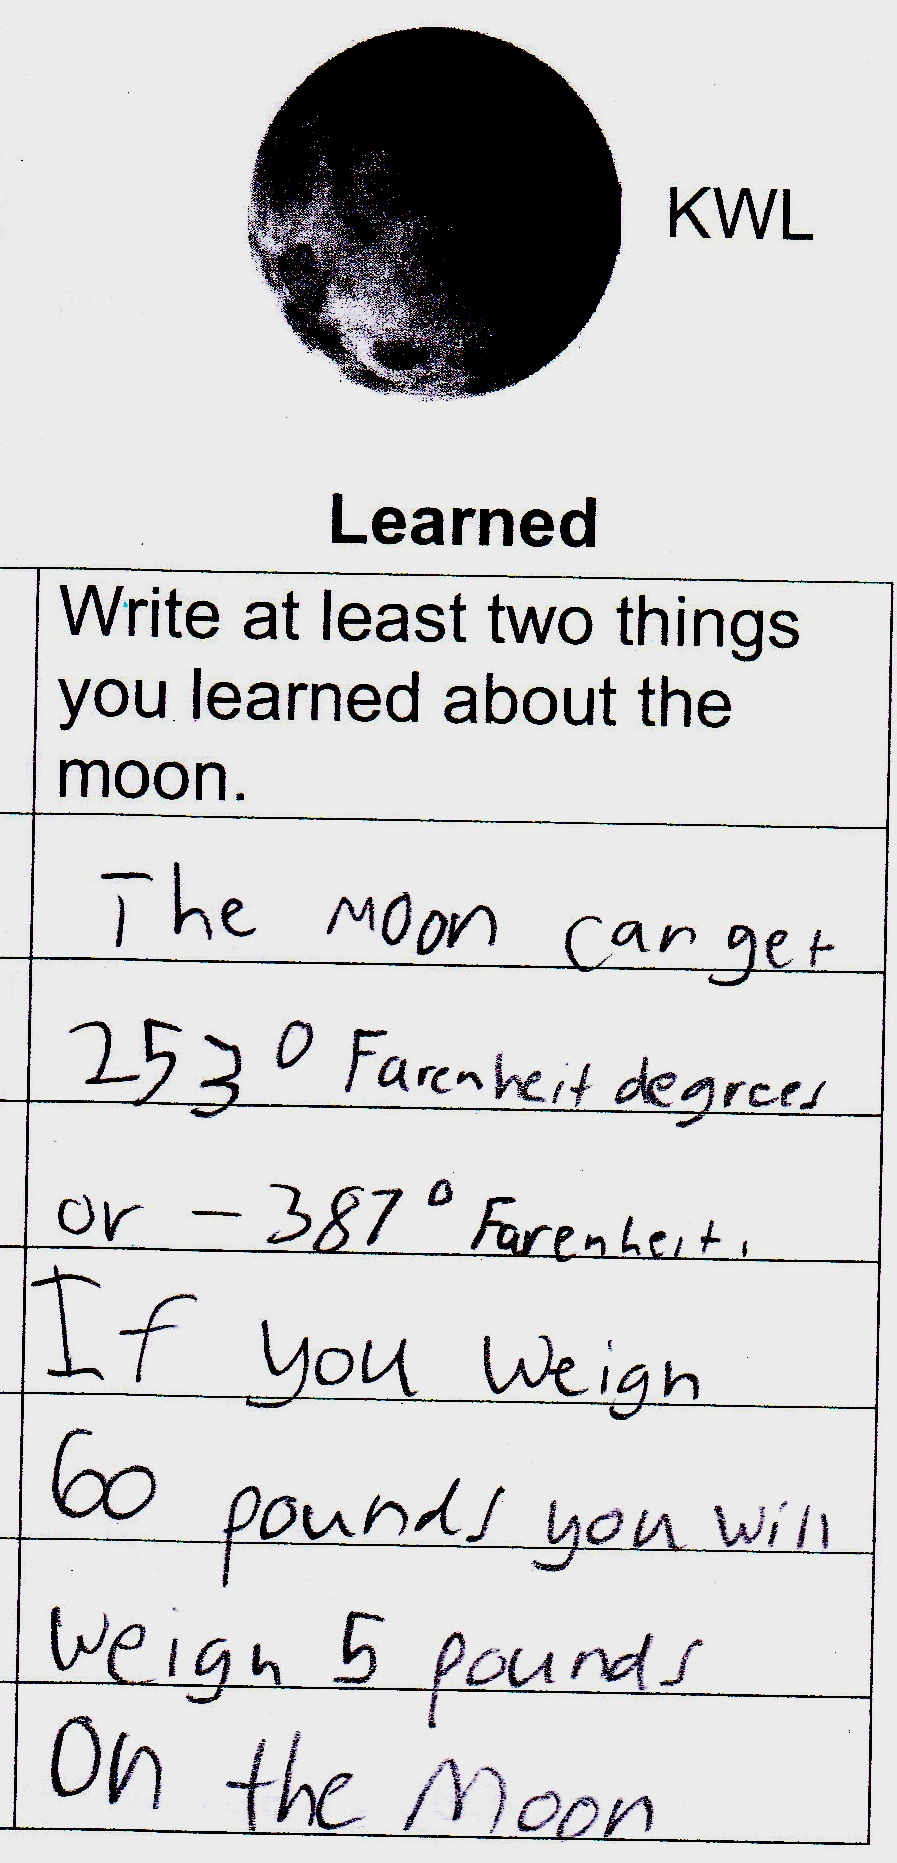 KWL
Learned
Write at least two things
you learned about the
moon.
The Moon can get
253° Farenheit degrees
or -387° Farenheit.
If you weigh
60 pounds you will
weigh 5 pounds
On the Moon